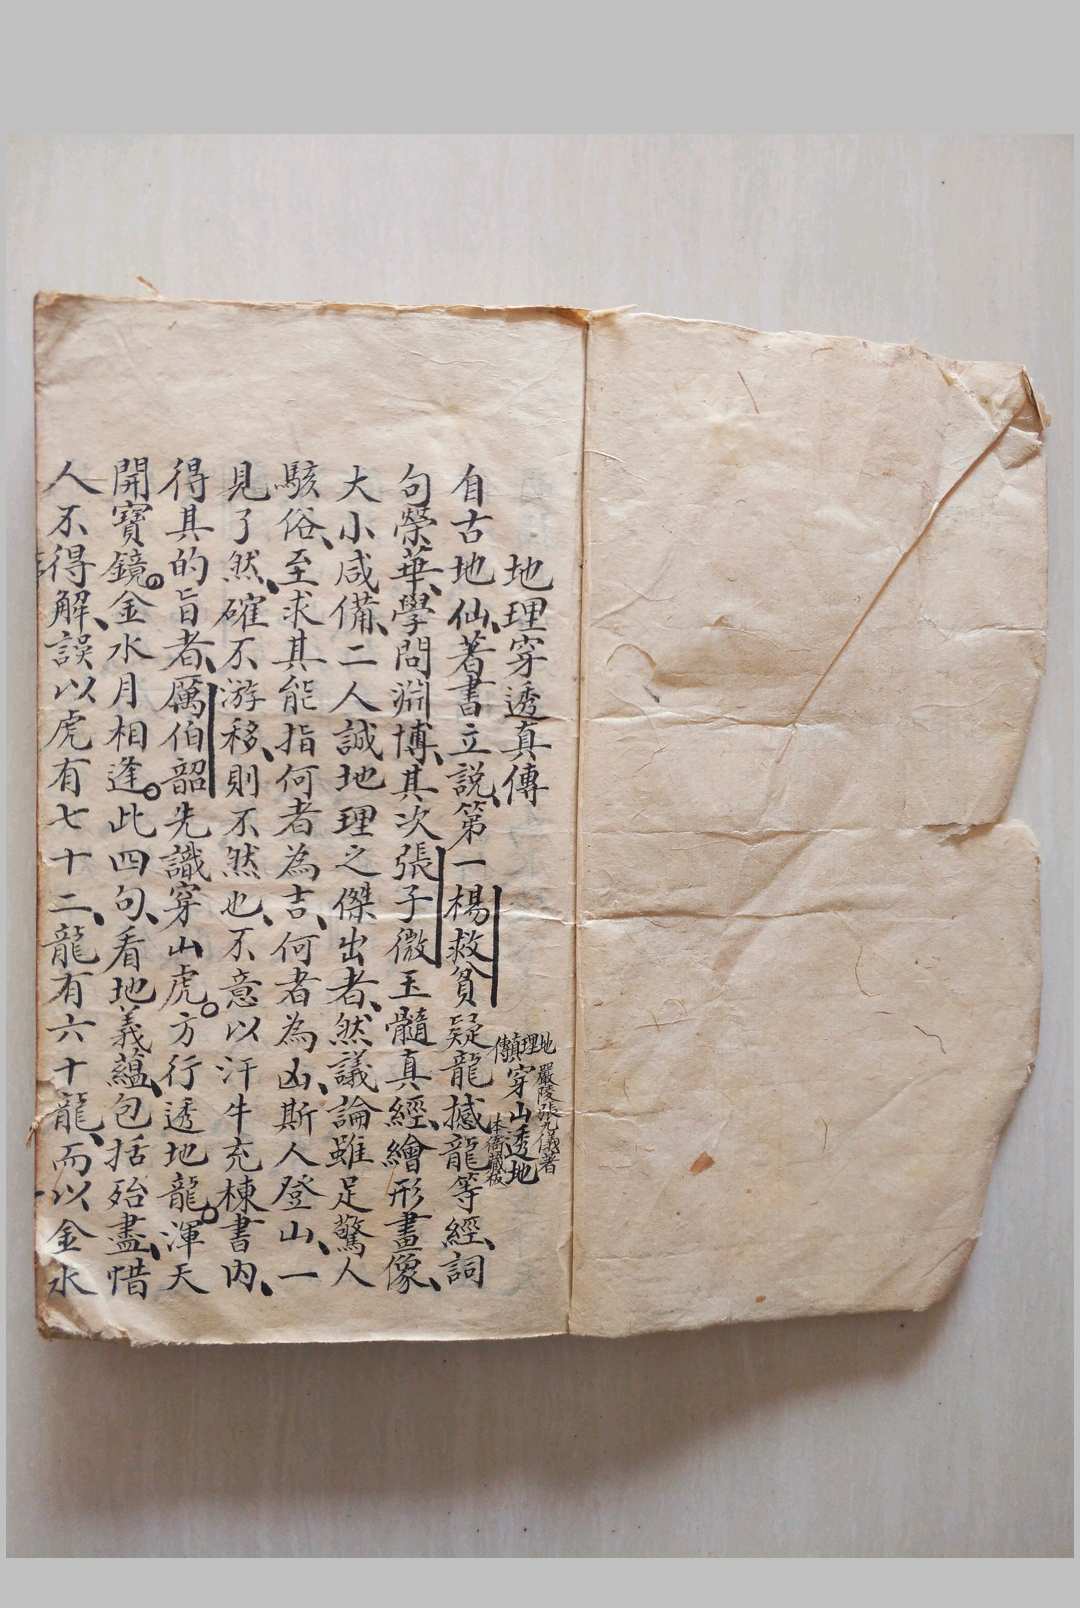 地理穿透真傳
嚴陵張九儀著
地理真傳
穿山透地
本衙藏板
自古地仙、著書立說、第一楊救貧疑龍撼龍等經、詞
句榮華、學問淵博、其次張子微玉髓真經、繪形畫像、
大小咸備、二人誠地理之傑出者、然議論雖足驚人
駭俗、至求其能指何者為吉、何者為凶、斯人登山、一
見了然、確不游移、則不然也、不意以汗牛充棟書內、
得其的旨者、厲伯韶先識穿山虎。方行透地龍。渾天
開寶鏡。金水月相逢。此四句、看地義蘊、包括殆盡、惜
人不得解、誤以虎有七十二、龍有六十龍、而以金水